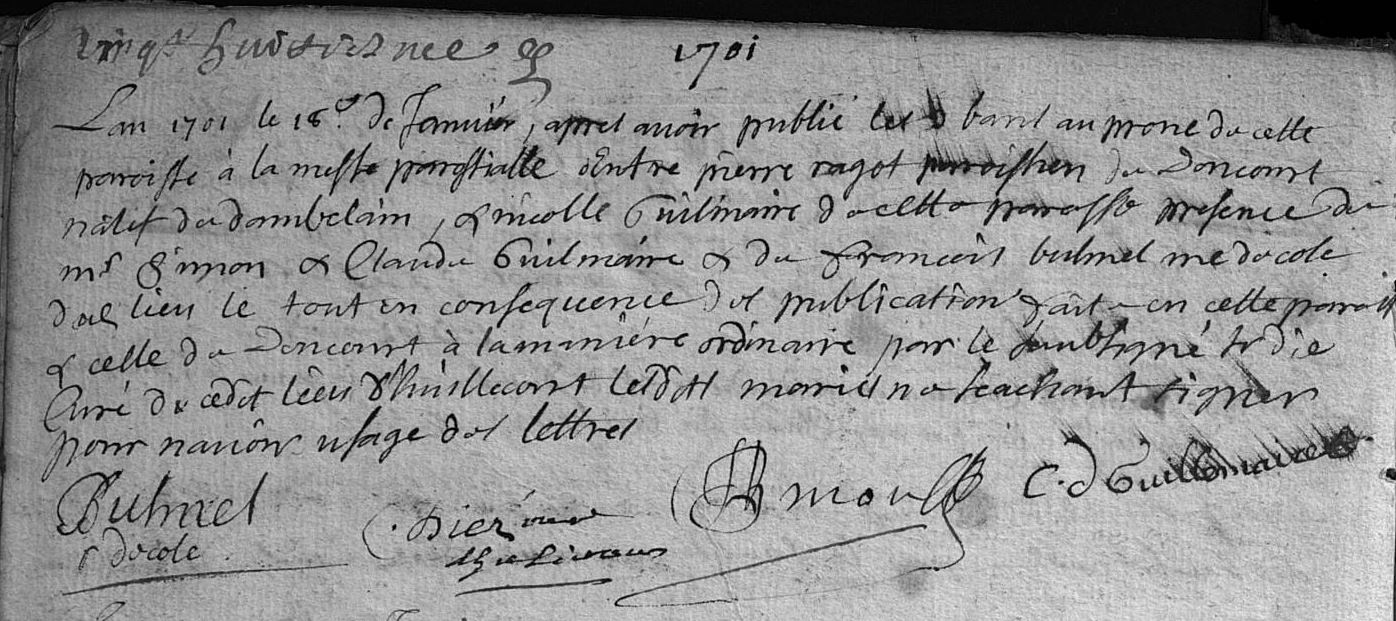 vingt huictiesme 1701
Lan 1701 le 18e de Janvier, apres avoir publié les 3 bans au prone de cette
paroisse à la messe paroissialle Entre pierre ragot paroissien de Doncourt
natif de dambelain, & nicolle Guilmaire de cette paroisse presence de
mr Simon & Claude Guilmaire & de francois hulmel me decole
des lieu le tout en consequence des publication fait en cette paroisse
& celle de Doncourt à la maniére ordinaire par le soubsigné
Curé de cedit lieu d'huillecourt lesdits mariés ne scachant signer
pour navoir usage des lettres
decole
C. d Guillemaire